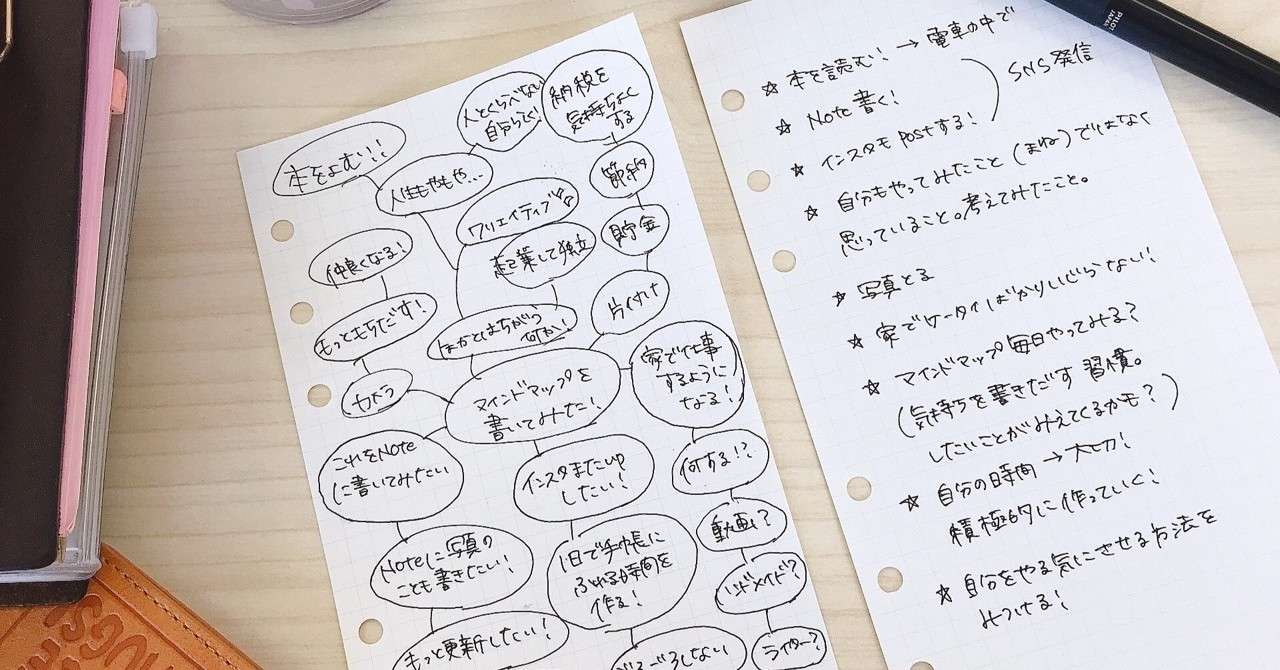 本をよむ!!
人生もやもや…
人とくらべない
自分らしく!
納税を
気持ちよく
する
節約
貯金
片付け
クリエイティブ
起業して独立
ほかとはちがう
何か!
仲良くなる!
もっともちだす!
カメラ
マインドマップを
書いてみた!
家で仕事
するように
なる!
これをNote
に書いてみたい
インスタまたup
したい!
何する!?
動画?
ハンドメイド?
ライター?
Noteに写真の
ことも書きたい!
もっと更新したい!
1日で手帳に
ふれる時間を
作る!
しない
☆ 本を読む! → 電車の中で
☆ Note 書く!
☆ インスタも Postする!
SNS発信
☆ 自分もやってみたこと (まね) ではなく
思っていること。考えてみたこと。
☆ 写真とる
☆ 家でケータイばかりいじらない!
☆ マインドマップ毎日やってみる?
(気持ちを書きだす 習慣。
したいことがみえてくるかも?)
☆ 自分の時間 → 大切!
積極的に作っていく!
☆ 自分をやる気にさせる方法を
みつける!
PILOT
JAPAN